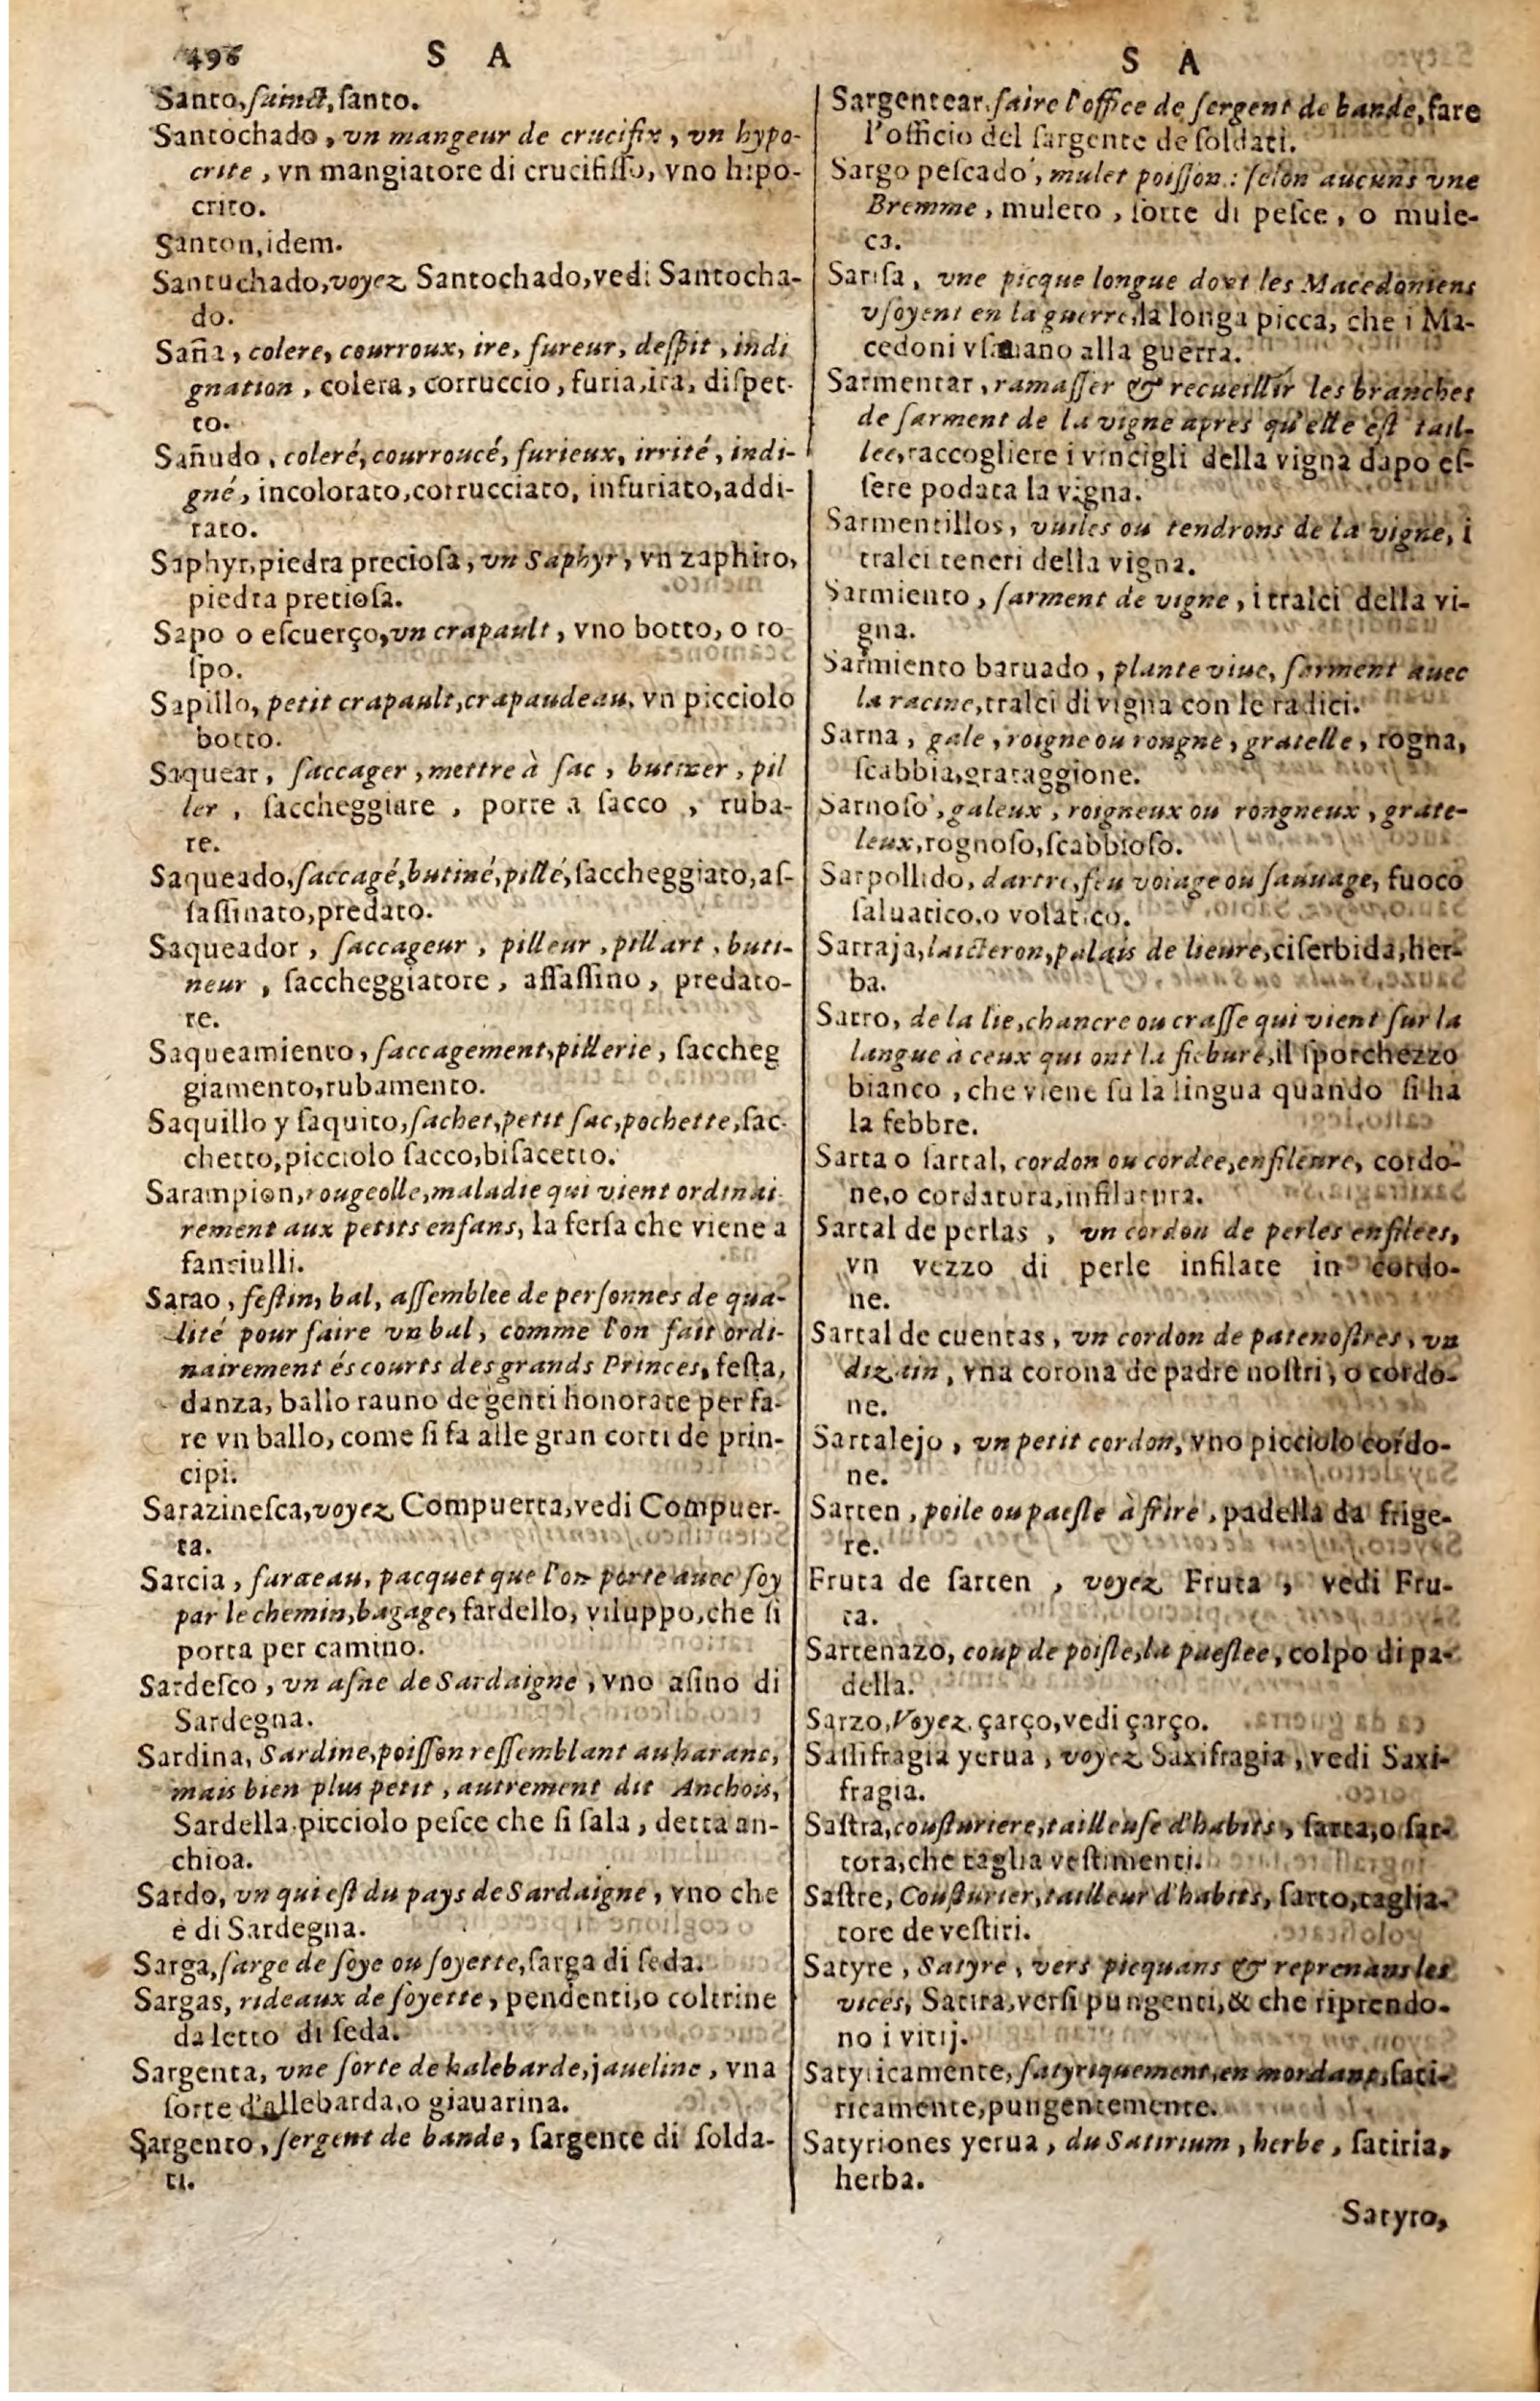 496 S A
Santo, sainct, santo.
Santochado, vn mangeur de crucifix, vn hypo-
crite, vn mangiatore di crucifisso, vno hipo-
crito.
Santon, idem.
Santuchado, voyez Santochado, vedi Santocha-
do.
Saña, colere, courroux, ire, fureur, despit, indi
gnation, colera, corruccio, furia, ira, dispet-
to.
Sañudo, coleré, courroucé, furieux, irrité, indi-
gné, incolorato, corrucciato, infuriato, addi-
rato.
Saphyr, piedra preciosa, vn Saphyr, vn zaphiro,
piedra pretiosa.
Sapo o escuerço, vn crapault, vno botto, o ro-
spo.
Sapillo, petit crapault, crapaudeau, vn picciolo
botto.
Saquear, saccager, mettre à sac, butiner, pil
ler, saccheggiare, porre a sacco, ruba-
re.
Saqueado, saccagé, butiné, pillé, saccheggiato, as-
sassinato, predato.
Saqueador, saccageur, pilleur, pillart, buti-
neur, saccheggiatore, assassino, predato-
re.
Saqueamiento, saccagement, pillerie, saccheg
giamento, rubamento.
Saquillo y saquito, sachet, petit sac, pochette, sac-
chetto, picciolo sacco, bisacetto.
Sarampion, rougeolle, maladie qui vient ordinai-
rement aux petits enfans, la fersa che viene a
fanciulli.
Sarao, festin, bal, assemblee de personnes de qua-
lité pour faire vn bal, comme l'on fait ordi-
nairement és courts des grands Princes, festa,
danza, ballo rauno de genti honorate per fa-
re vn ballo, come si fa alle gran corti de prin-
cipi.
Sarazinesca, voyez Compuerta, vedi Compuer-
ta.
Sarcia, fardeau, pacquet que l'on porte auec soy
par le chemin, bagage, fardello, viluppo, che si
porta per camino.
Sardesco, vn asne de Sardaigne, vno asino di
Sardegna.
Sardina, Sardine, poisson ressemblant au haranc,
mais bien plus petit, autrement dit Anchois,
Sardella, picciolo pesce che si sala, detta an-
chioa.
Sardo, vn qui est du pays de Sardaigne, vno che
è di Sardegna.
Sarga, sarge de soye ou soyette, sarga di seda.
Sargas, rideaux de soyette, pendenti, o coltrine
da letto di seda.
Sargenta, vne sorte de halebarde, jaueline, vna
sorte d'allebarda, o giauarina.
Sargento, sergent de bande, sargente di solda-
ti.
S A
Sargentear, faire l'office de sergent de bande, fare
l'officio del sargente de soldati.
Sargo pescado, mulet poisson: selon aucuns vne
Bremme, muleto, sorte di pesce, o mule-
ca.
Sarisa, vne picque longue dont les Macedoniens
vsoyent en la guerre, la longa picca, che i Ma-
cedoni vsauano alla guerra.
Sarmentar, ramasser & recueillir les branches
de sarment de la vigne apres qu'elle est tail-
lee, raccogliere i vincigli della vigna dapo es-
sere podata la vigna.
Sarmentillos, vuiles ou tendrons de la vigne, i
tralci teneri della vigna.
Sarmiento, sarment de vigne, i tralci della vi-
gna.
Sarmiento baruado, plante viue, sarment auec
la racine, tralci di vigna con le radici.
Sarna, gale, roigne ou rongne, gratelle, rogna,
scabbia, grataggione.
Sarnoso, galeux, roigneux ou rongneux, grate-
leux, rognoso, scabbioso.
Sarpollido, dartre, feu volage ou sauuage, fuoco
saluatico, o volatico.
Sarraja, laicteron, palais de lieure, ciserbida, her-
ba.
Sarro, de la lie, chancre ou crasse qui vient sur la
langue à ceux qui ont la fiebure, il sporchezzo
bianco, che viene su la lingua quando si ha
la febbre.
Sarta o sartal, cordon ou cordee, enfileure, cordo-
ne, o cordatura, infilatura.
Sartal de perlas, vn cordon de perles enfilees,
vn vezzo di perle infilate in cordo-
ne.
Sartal de cuentas, vn cordon de patenostres, vn
dizain, vna corona de padre nostri, o cordo-
ne.
Sartalejo, vn petit cordon, vno picciolo cordo-
ne.
Sarten, poile ou paesle à frire, padella da frige-
re.
Fruta de sarten, voyez Fruta, vedi Fru-
ta.
Sartenazo, coup de poisle, la paeslee, colpo di pa-
della.
Sarzo, Voyez çarço, vedi çarço.
Sassifragia yerua, voyez Saxifragia, vedi Saxi-
fragia.
Sastra, cousturiere, tailleuse d'habits, sarta, o sar-
tora, che taglia vestimenti.
Sastre, Cousturier, tailleur d'habits, sarto, taglia-
tore de vestiri.
Satyre, Satyre, vers picquans & reprenans les
vices, Satira, versi pungenti, & che riprendo-
no i vitij.
Satyricamente, satyriquement, en mordant, sati-
ricamente, pungentemente.
Satyriones yerua, du Satirium, herbe, satiria,
herba.
Satyro,